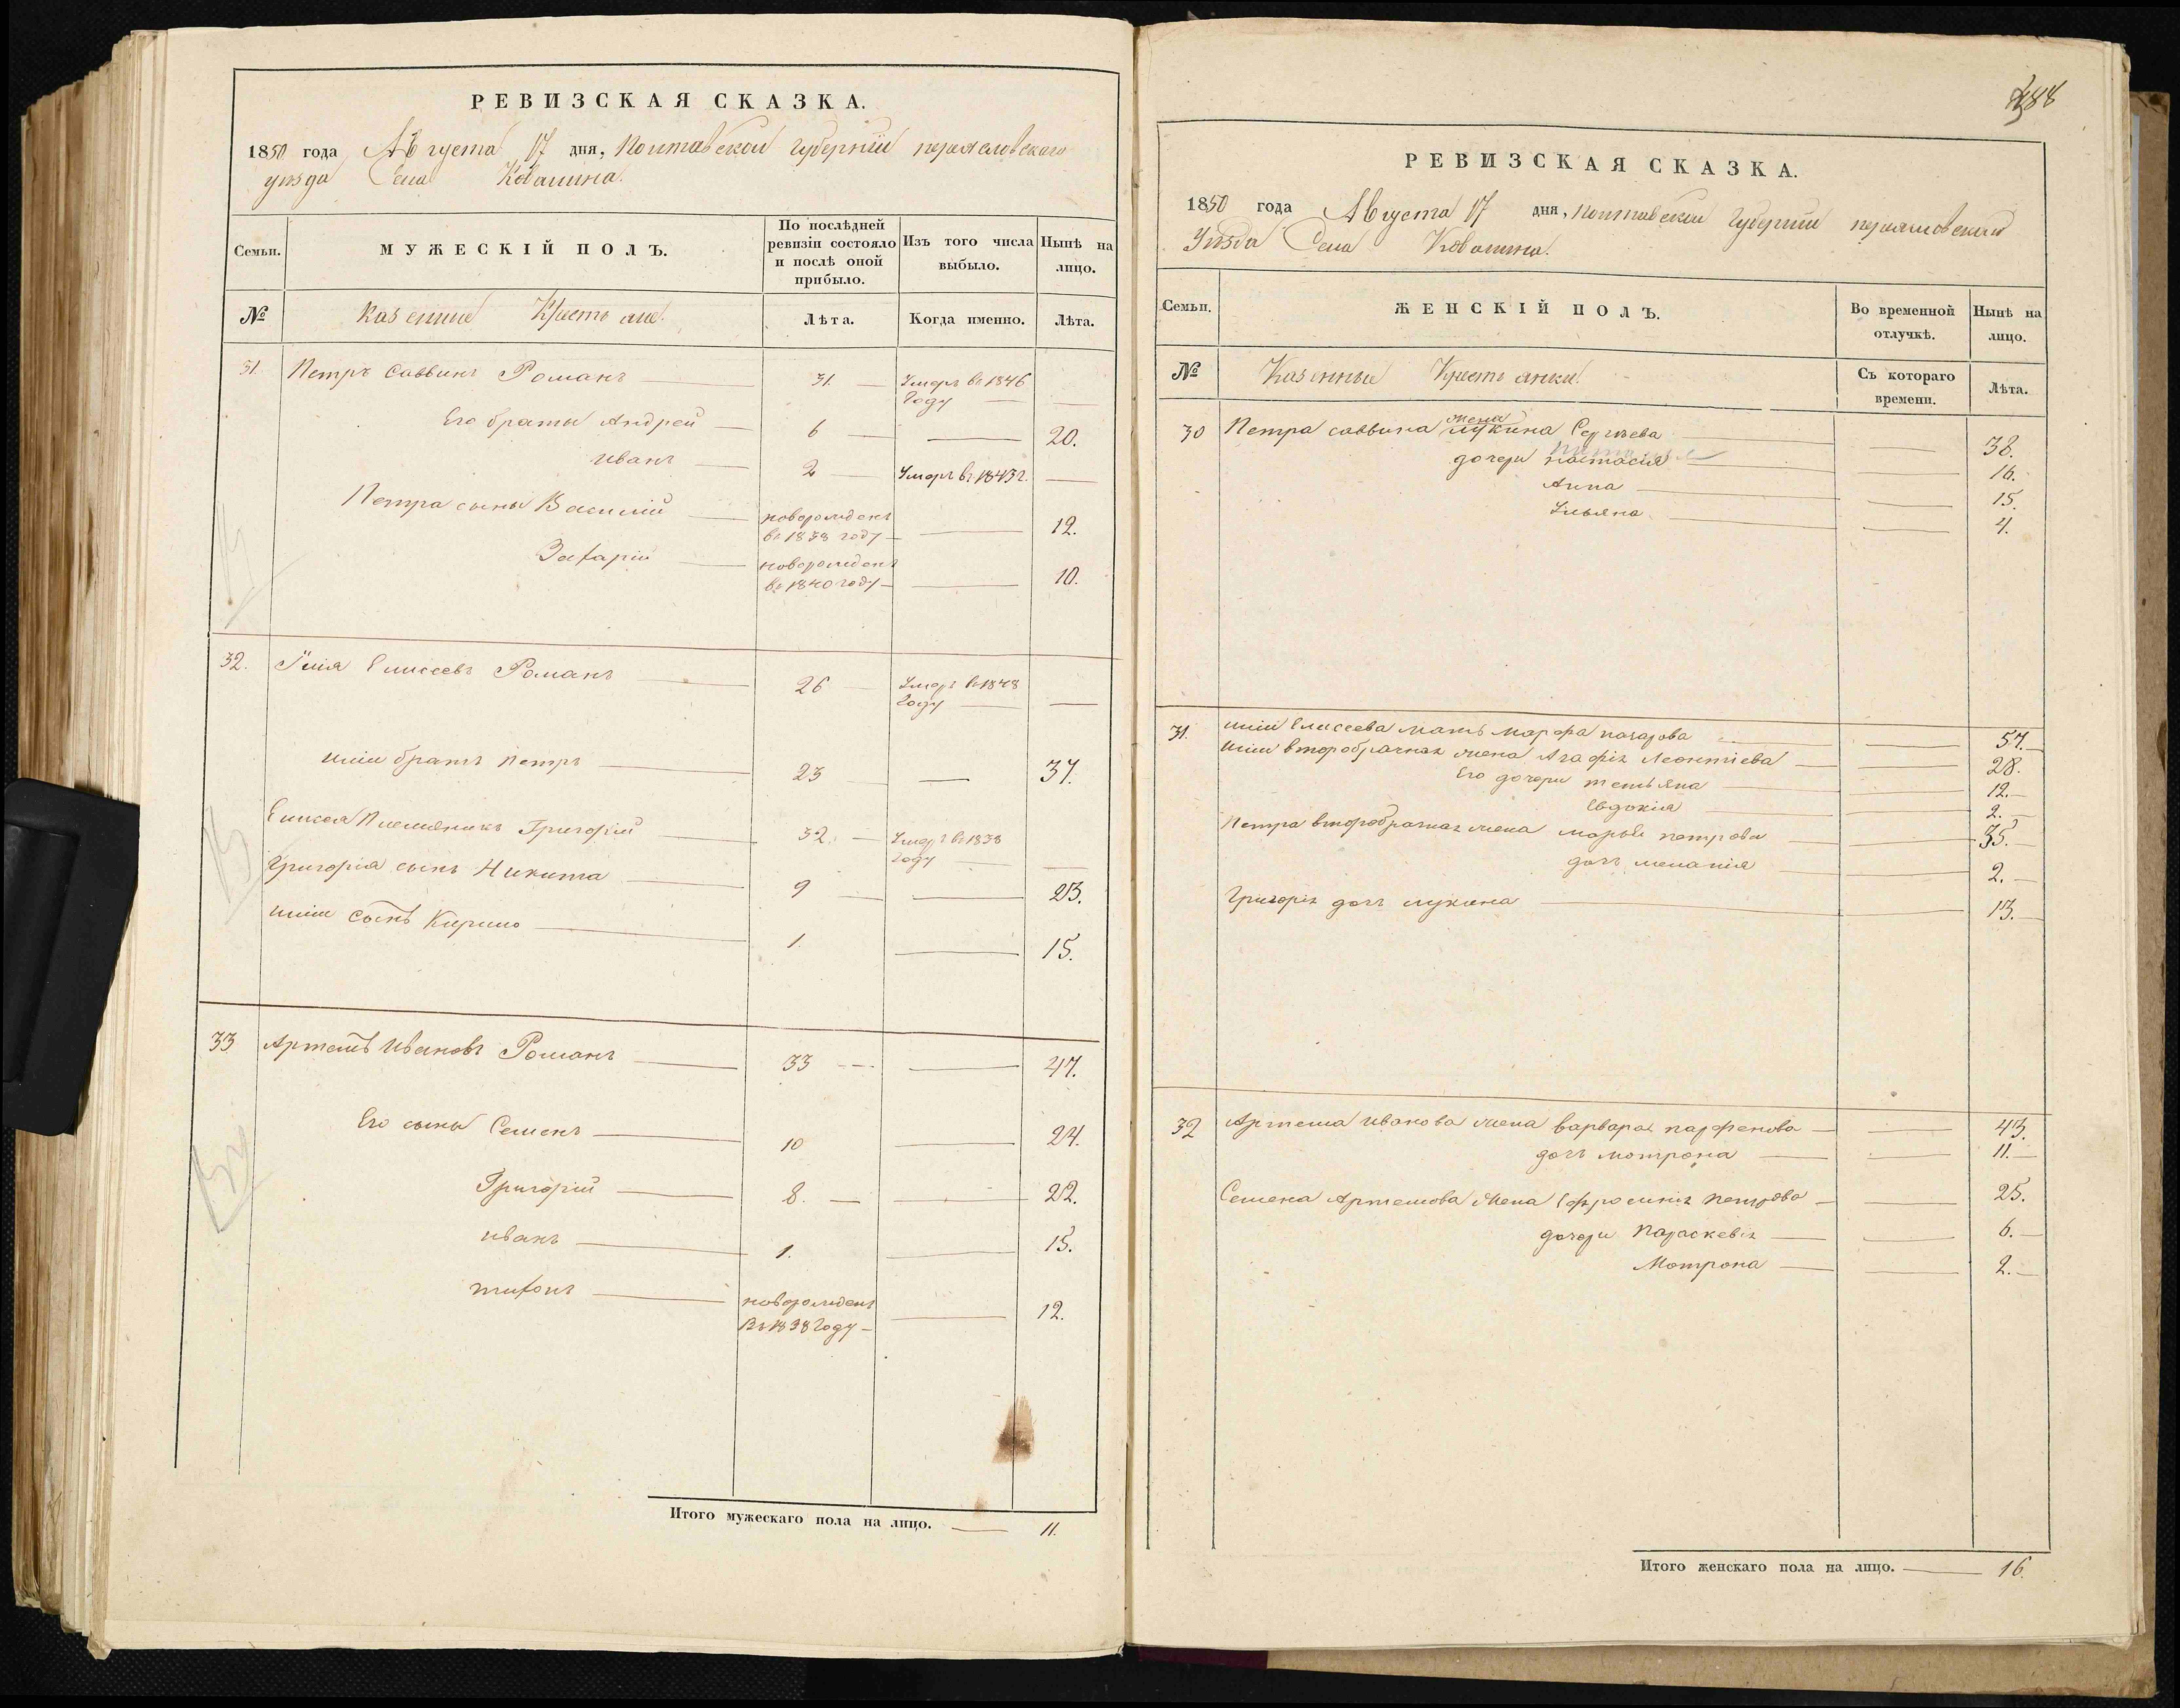 РЕВИЗСКАЯ СКАЗКА.
1850 года Августа 17 дня, Полтавской Губернии переяславскаго
уѣзда Села Ковалина.
Семьи.
МУЖЕСКІЙ ПОЛЪ.
По послѣдней ревизіи состояло и послѣ оной прибыло.
Изъ того числа выбыло.
Нынѣ на лицо.
№
Казенные Крестьяне.
Лѣта.
Когда именно.
Лѣта.
31. Петръ Саввинъ Романъ 31. Умеръ въ 1846 Году
Его братья Андрей 6 20.
Иванъ 2 Умеръ въ 1843 г.
Петра сыны Василий новорожденъ въ 1838 году 12.
Захарій новорожденъ въ 1840 году 10.
32. Илія Елисеевъ Романъ 26 Умеръ въ 1848 Году
Иліи братъ Петръ 23 37.
Елисея Племяникъ Григорій 32. Умеръ въ 1838 году
Григорія сынъ Никита 9 23.
Иліи Сынъ Кирило 1. 15.
33 Артемъ Ивановъ Романъ 33 47.
Его сыны Семенъ 10 24.
Григорій 8. 22.
иванъ 1. 15.
тихонъ новорожденъ Въ 1838 Году 12.
Итого мужескаго пола на лицо. 11.
388
РЕВИЗСКАЯ СКАЗКА.
1850 года Августа 17 дня, полтавской Губернии переяславскаго
Уѣзда Села Ковалина.
Семьи.
ЖЕНСКІЙ ПОЛЪ.
Во временной отлучкѣ.
Нынѣ на лицо.
№
Казенные Крестьянки.
Съ котораго времени.
Лѣта.
30 Петра саввина жена лукина Сергѣева 38.
дочери настасія 16.
Анна 15.
Ульяна 4.
31. Иліи Елисеева мать марфа назарова 57.
Иліи второбрачная жена Агафія Леонтіева 28.
Его дочери татьяна 12.
Евдокія 2.
Петра второбрачная жена марья петрова 35.
дочь меланія 2.
Григорія дочь лукина 13.
32 Артема иванова жена варвара парфенова 43.
дочь мотрона 11.
Семена Артемова жена Ефросинія петрова 25.
дочери Параскевія 6.
Мотрона 2.
Итого женскаго пола на лицо. 16.